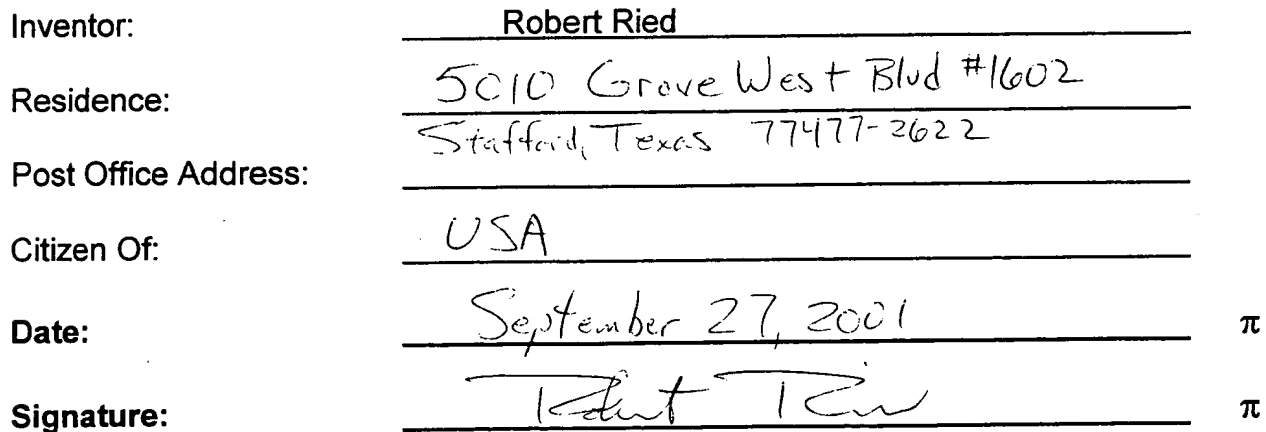 Inventor: Robert Ried
Residence: 5010 Grove West Blvd #1602
Stafford, Texas 77477-2622
Post Office Address:
Citizen Of: USA
Date: September 27, 2001 π
Signature: Robert Ried π